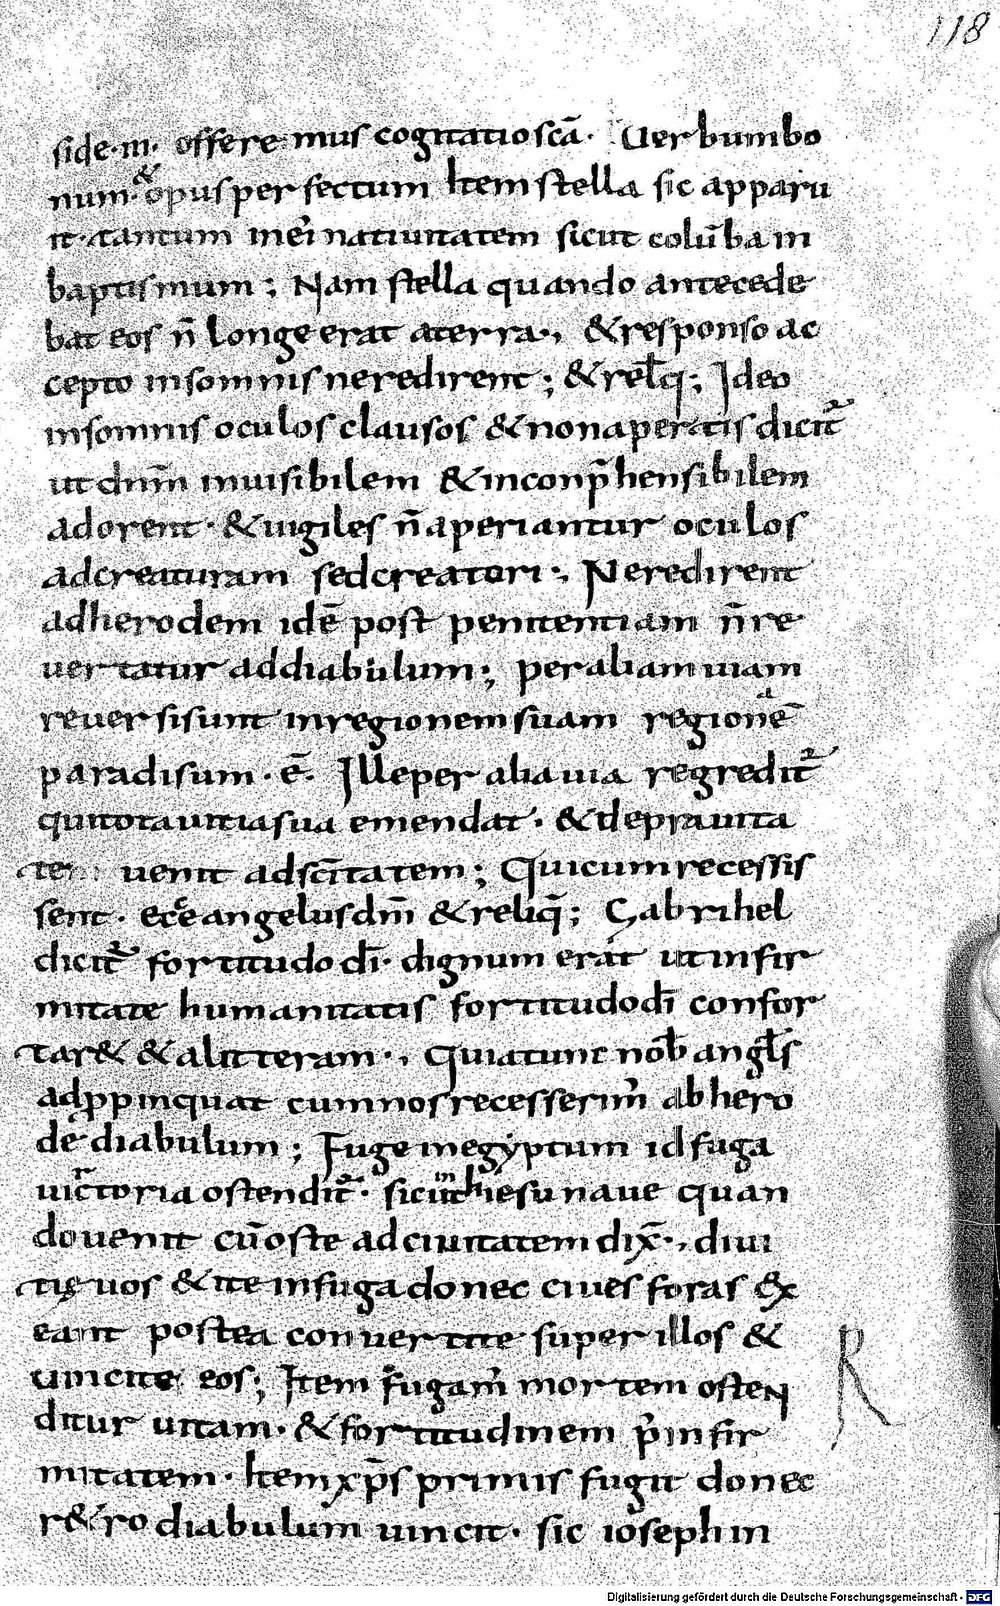 118
side·m· offere mus cogitatio scā· Uerbum bo
num· & opus perfectum Item stella sic apparu
it· tantum in natiuitatem sicut colūba in
baptismum ; Nam stella quando antecede
bat eos n̄ longe erat a terra·, & responso ac
cepto in somnis ne redirent ; & relq̄ ; Ideo
in somnis oculos clausos & non apertis dicit̄
ut dnm̄ inuisibilem & inconp̄hensibilem
adorent· & uigiles n̄ aperiantur oculos
ad creaturam sed creatori·, Ne redirent
ad herodem idē post penitentiam n̄ re
uertatur ad diabulum ; per aliam uiam
reuersi sunt in regionem suam regionē
paradisum· ē· Ille per alia uia regredit̄
qui tota uitia sua emendat· & de prauita
te uenit ad scītatem ; Qui cum recessis
sent· ecce angelus dn̄i & reliq̄ ; Gabrihel
dicit̄ fortitudo dī· dignum erat ut infir
mitate humanitatis fortitudo dī confor
tar& & aliter· Quia tunc nob̄ angl̄s
adp̱pinquat cum nos recesserim̄ ab hero
de diabulum ; Fuge in egyptum id fuga
uictoria ostendit̄· sicut in hiesu naue quan
do uenit cū oste ad ciuitatem dix̄·, diui
tis uos & ite in fuga donec ciues foras ex
eant postea conuertite super illos &
uincite eos ; Item p̄ fugam mortem osten
ditur uitam· & fortitudinem p̄ infir
mitatem· Item xp̄s primis fugit donec
r&ro diabulum uincit· sic ioseph in
R
Digitalisierung gefördert durch die Deutsche Forschungsgemeinschaft - DFG